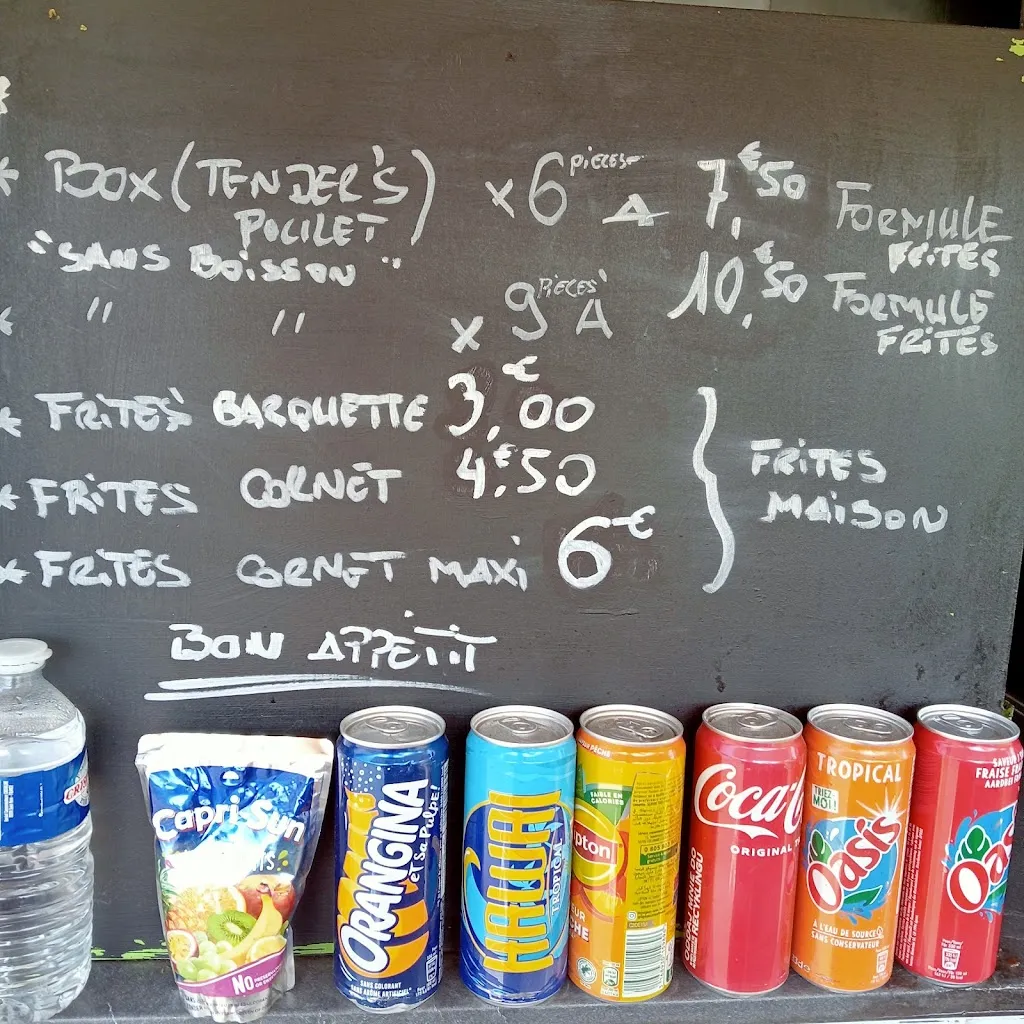 * BOX (TENDER'S) x 6 PIECES A 7,€50 FORMULE
POULET FRITES
"SANS BOISSON"
* " " x 9 PIECES A 10,€50 FORMULE
FRITES
* FRITES BARQUETTE 3,€00
* FRITES CORNET 4,€50
* FRITES CORNET MAXI 6€
} FRITES
MAISON
BON APPETIT
Capri-Sun
NO
ORANGINA
et Sa Pulpe!
SANS COLORANT
SANS ARÔME ARTIFICIEL
HAWAI
TROPICAL
FAIBLE EN
CALORIES
pton
Coca-C
ORIGINAL T
TROPICAL
TRIEZ
MOI!
Oasis
À L'EAU DE SOURCE
SANS CONSERVATEUR
SAVEUR
FRAISE FR
Oas